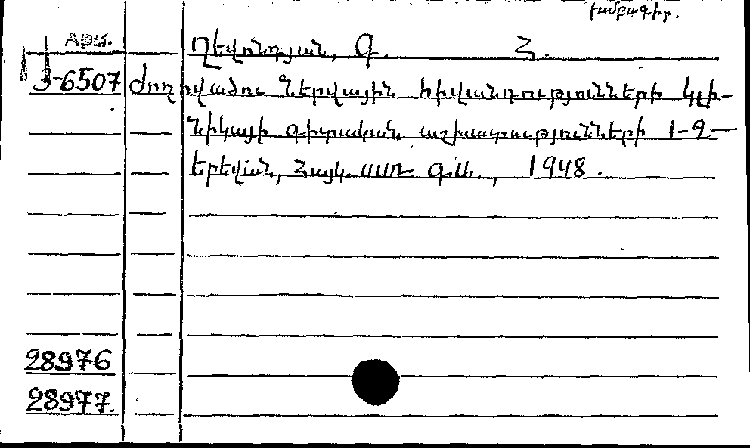 խմբագիր.
Արմ.
Ղևոնդյան, Գ. Հ.
3-6507 Ժողովածու ներվային հիվանդությունների կլի-
նիկայի գիտական աշխատությունների 1-9-
Երեվան, Հայկ. ՍՍՌ Գ.Ա., 1948.
28976
28977